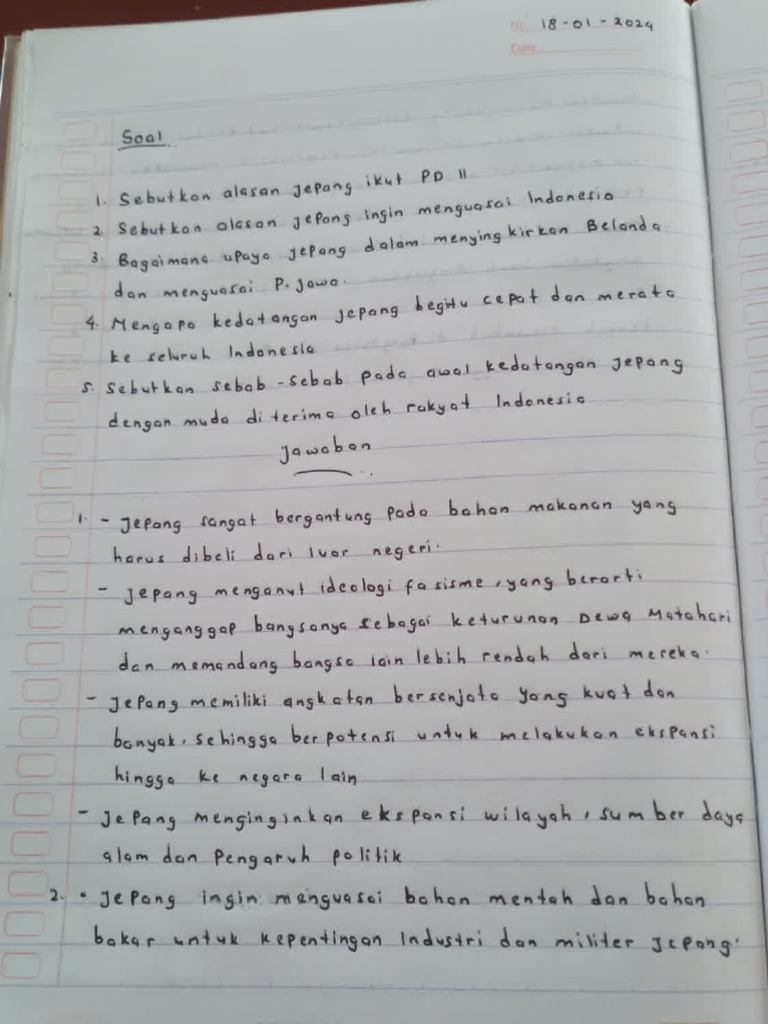 No. 18-01-2024
Date
Soal
1. Sebutkan alasan jepang ikut PD II
2. Sebutkan alasan jepang ingin menguasai Indonesia
3. Bagaimana upaya jepang dalam menyingkirkan Belanda
dan menguasai P. jawa.
4. Mengapa kedatangan jepang begitu cepat dan merata
ke seluruh Indonesia
5. Sebutkan sebab-sebab pada awal kedatangan jepang
dengan muda diterima oleh rakyat Indonesia
jawaban
1. - jepang sangat bergantung pada bahan makanan yang
harus dibeli dari luar negeri.
- jepang menganut ideologi fasisme, yang berarti
menganggap bangsanya sebagai keturunan Dewa Matahari
dan memandang bangsa lain lebih rendah dari mereka.
- jepang memiliki angkatan bersenjata yang kuat dan
banyak, sehingga berpotensi untuk melakukan ekspansi
hingga ke negara lain
- jepang menginginkan ekspansi wilayah, sumber daya
alam dan pengaruh politik
2. • jepang ingin menguasai bahan mentah dan bahan
bakar untuk kepentingan Industri dan militer jepang.